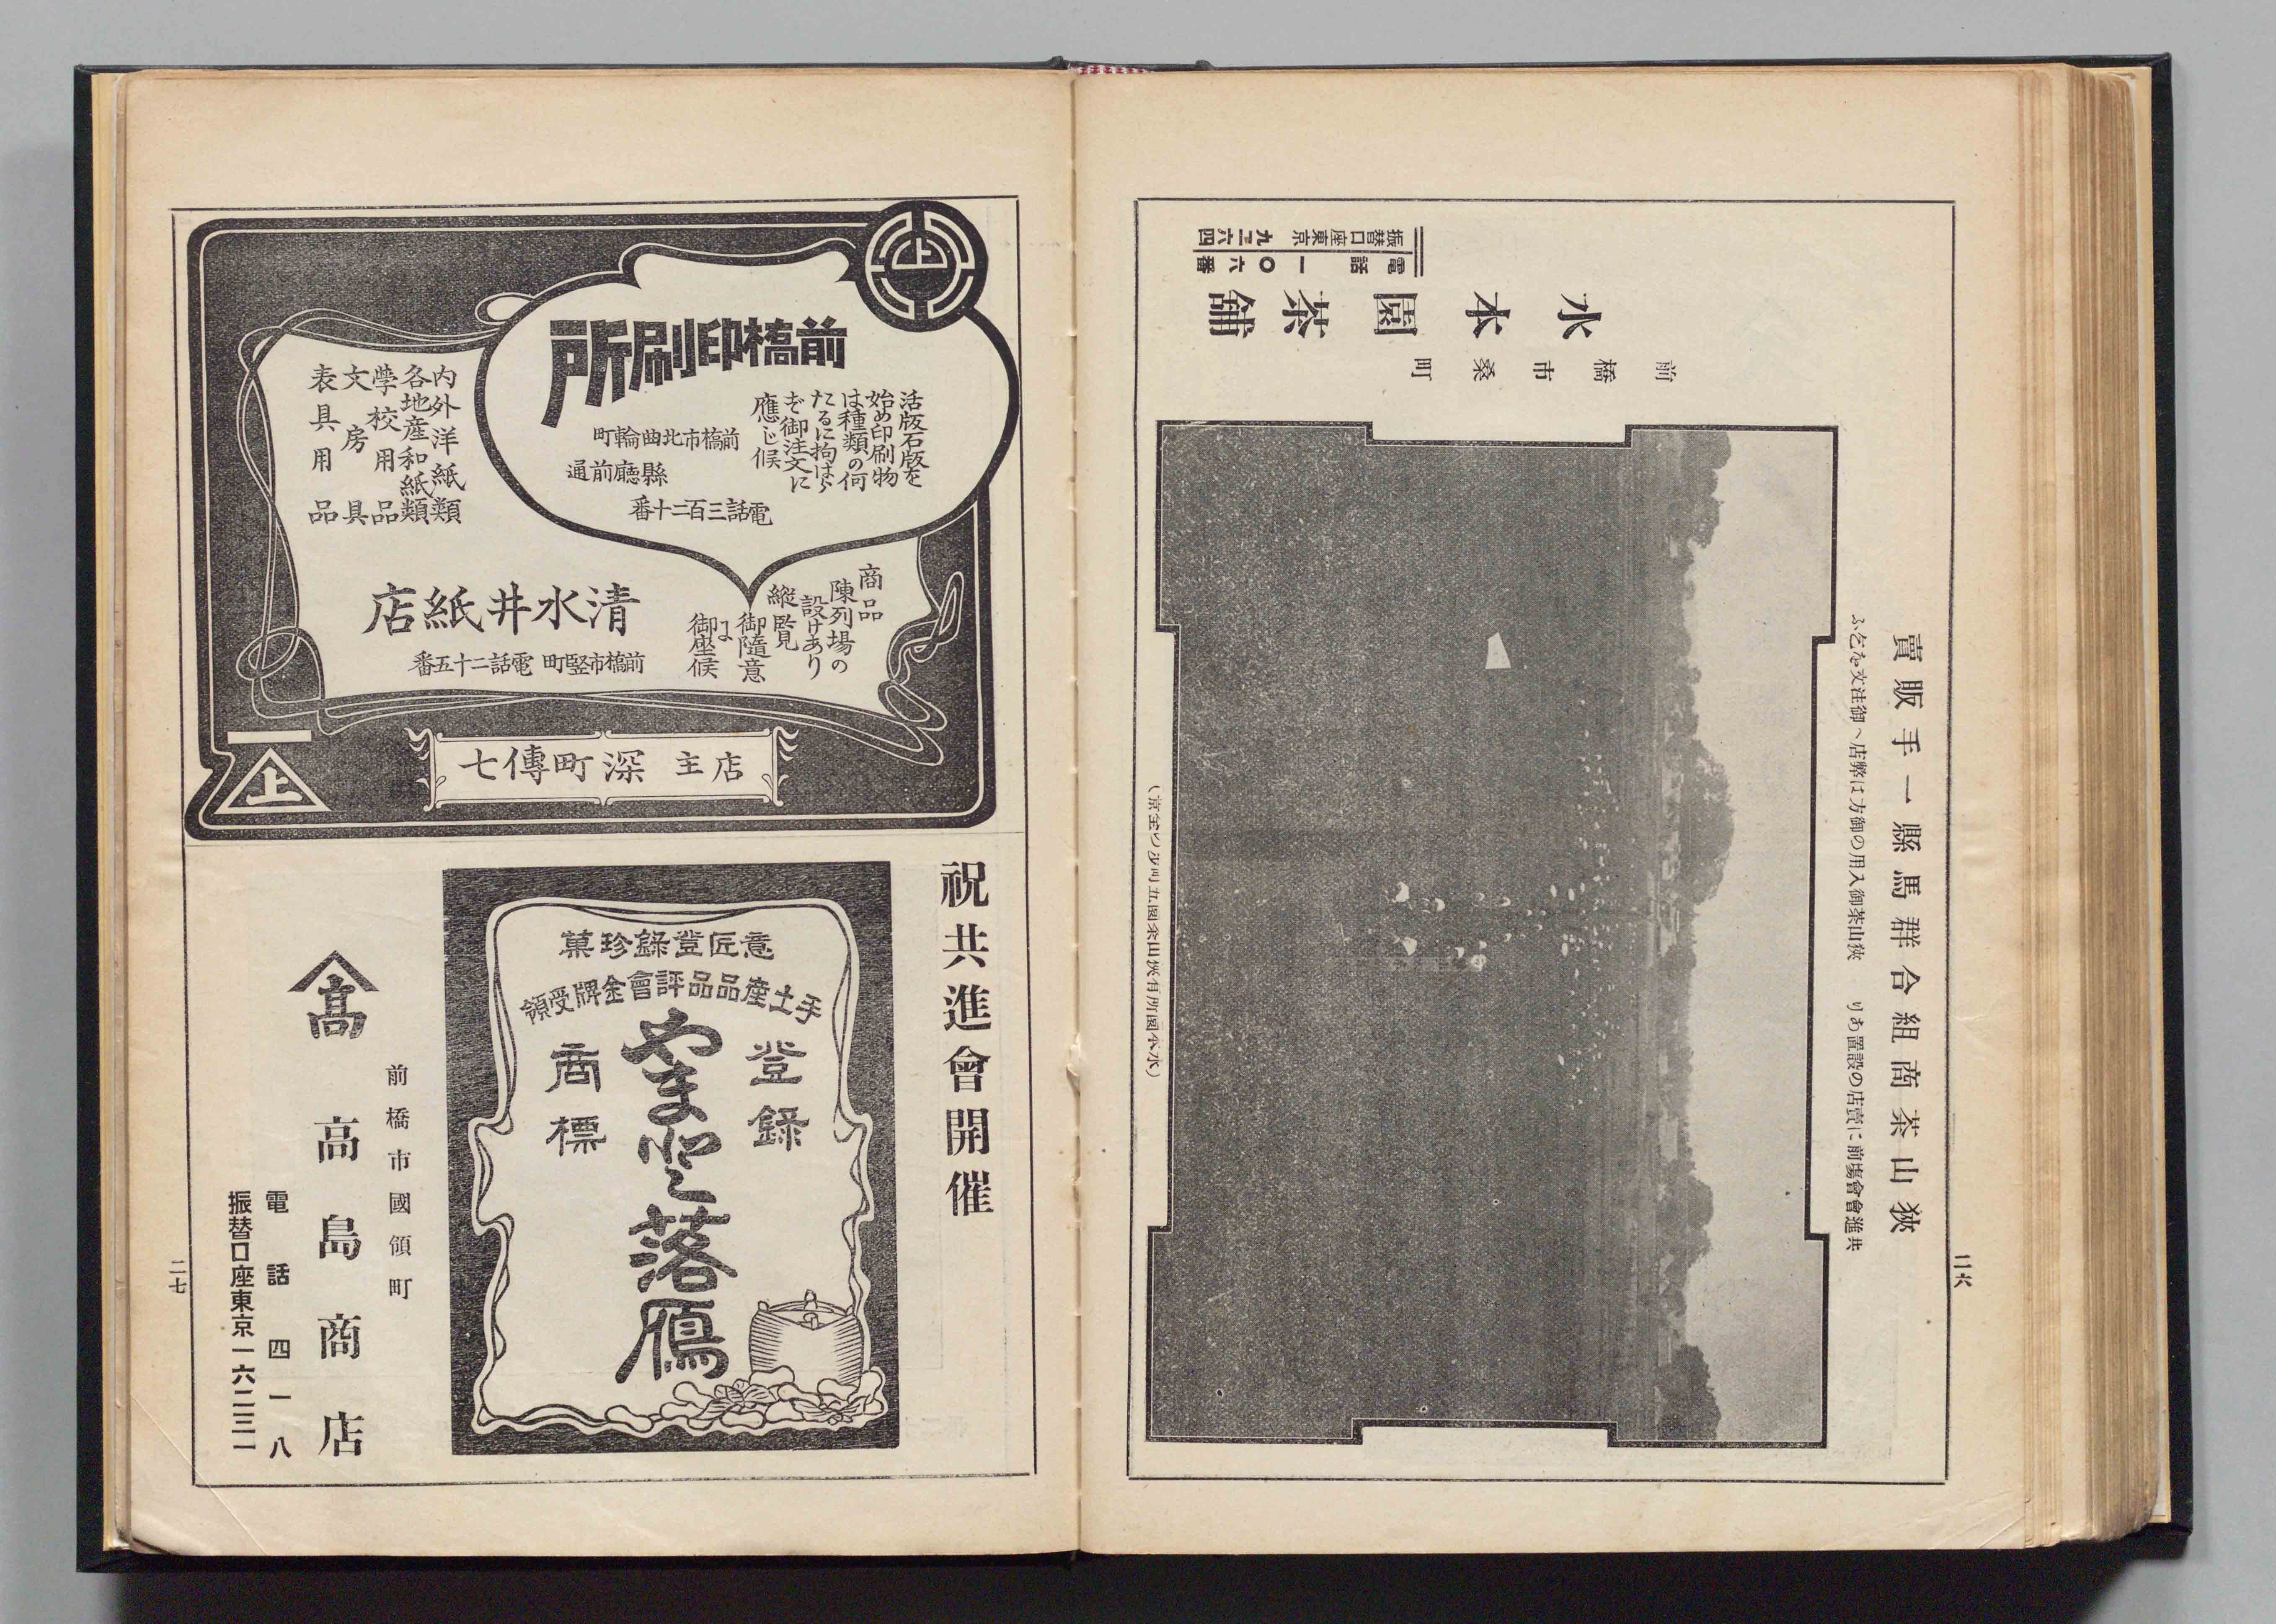 狹山茶商組合群馬縣一手販賣
共進會會場前に賣店の設置あり　狹山茶御入用の御方は弊店へ御注文を乞ふ
（水本園所有狹山茶園五町歩ノ全景）
前橋市桑町
水本園茶舖
電話一〇六番
振替口座東京九二六四
二六
上
前橋印刷所
活版石版を
始め印刷物
は種類の何
たるに拘はら
ず御注文に
應じ候
前橋市北曲輪町
縣廳前通
電話三百二十番
内外洋紙類
各地産和紙類
學校用品
文房具
表具用品
商品
陳列場の
設けあり
縱覧
御隨意
に
御座候
清水井紙店
前橋市竪町 電話二十五番
店主 深町傳七
上
祝共進會開催
意匠登錄珍菓
手土産品品評會金牌受領
登錄
やまと落鴈
商標
前橋市國領町
髙
高島商店
電話四一八
振替口座東京一六二三二
二七